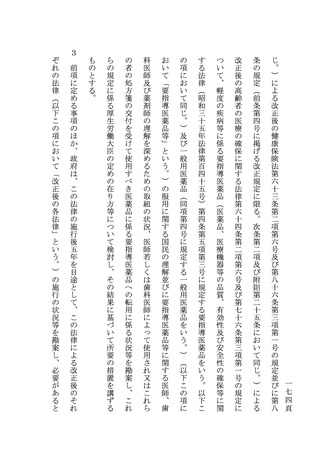 一七四頁
じ。）による改正後の健康保険法第六十三条第二項第六号及び第八十六条第三項第一号の規定並びに第八
条の規定（前条第四号に掲げる改正規定に限る。次条第二項及び附則第二十五条において同じ。）による
改正後の高齢者の医療の確保に関する法律第六十四条第二項第六号及び第七十六条第三項第一号の規定に
ついて、軽度の疾病等に係る要指導医薬品（医薬品、医療機器等の品質、有効性及び安全性の確保等に関
する法律（昭和三十五年法律第百四十五号）第四条第五項第三号に規定する要指導医薬品をいう。以下こ
の項において同じ。）及び一般用医薬品（同項第四号に規定する一般用医薬品をいう。）（以下この項に
おいて「要指導医薬品等」という。）の服用に関する国民の理解並びに要指導医薬品等に関する医師、歯
科医師及び薬剤師の理解を深めるための取組の状況、医師若しくは歯科医師によって使用され又はこれら
の者の処方箋の交付を受けて使用すべき医薬品に係る要指導医薬品への転用に係る状況等を勘案し、これ
らの規定に係る厚生労働大臣の定めの在り方等について検討し、その結果に基づいて所要の措置を講ずる
ものとする。
３　前項に定める事項のほか、政府は、この法律の施行後五年を目途として、この法律による改正後のそれ
ぞれの法律（以下この項において「改正後の各法律」という。）の施行の状況等を勘案し、必要があると